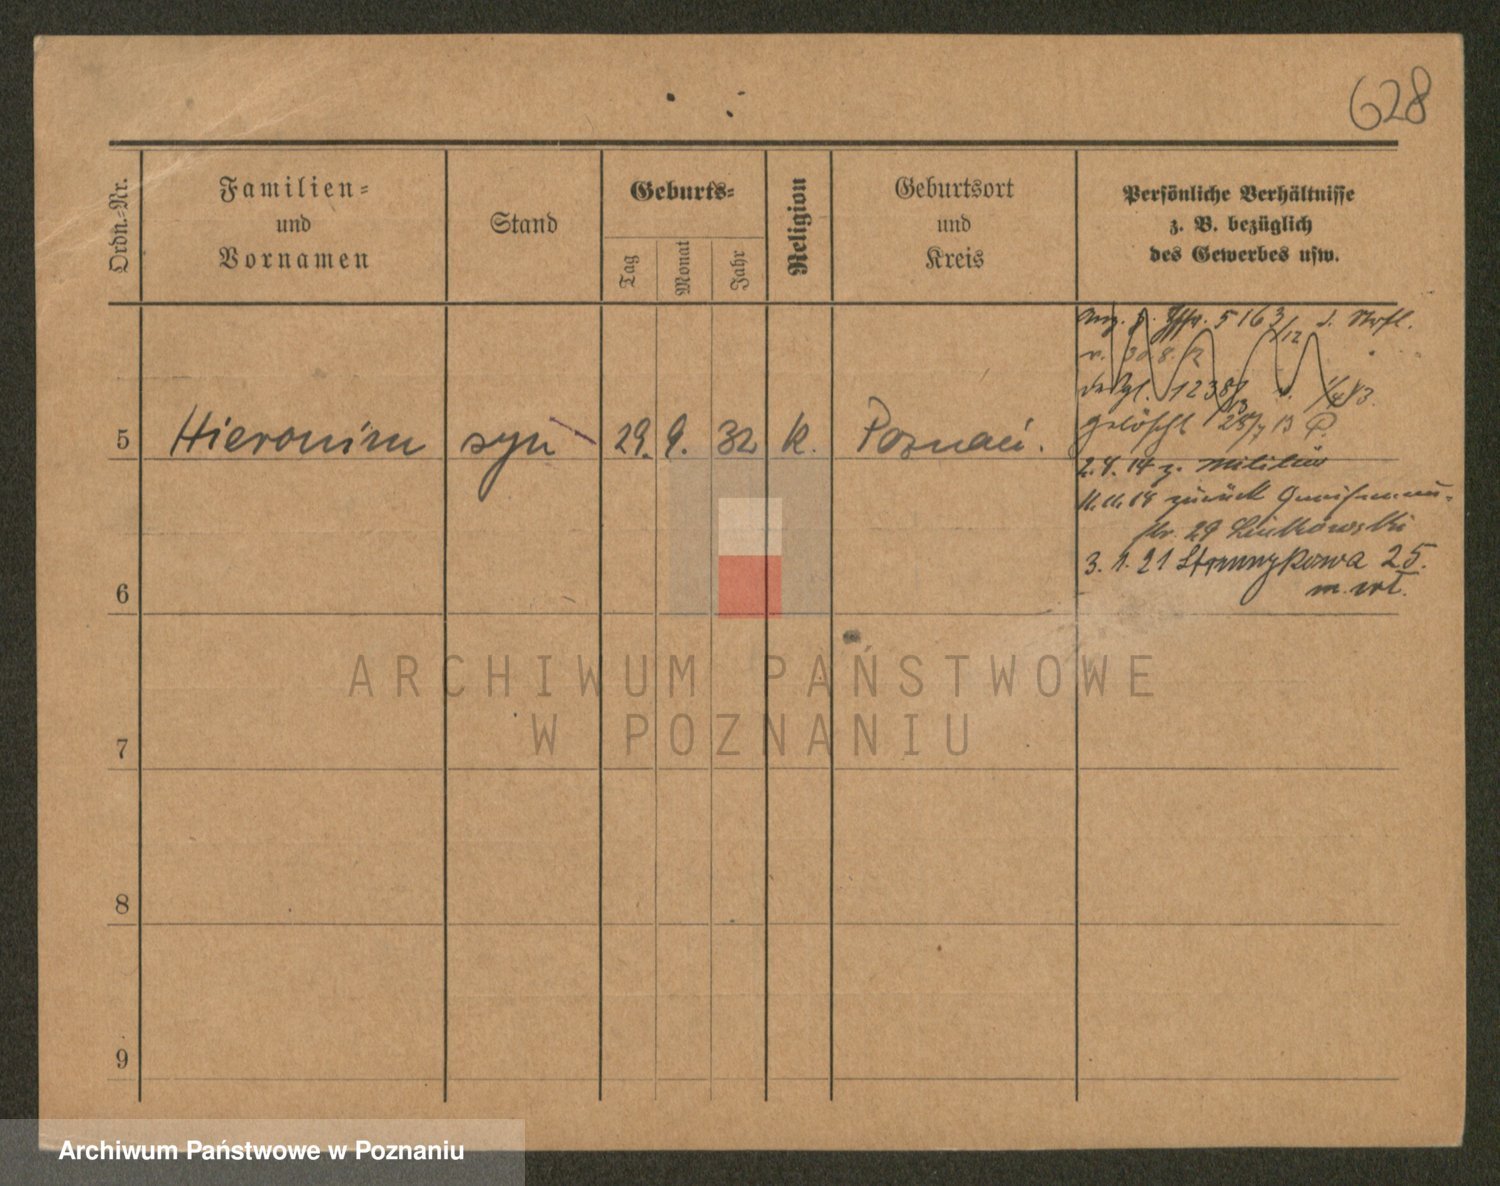 628
Ordn.-Nr.
Familien-
und
Vornamen
Stand
Geburts-
Tag
Monat
Jahr
Religion
Geburtsort
und
Kreis
Persönliche Verhältnisse
z. B. bezüglich
des Gewerbes usw.
5163/12
v. 30.8.12
desgl. 1238/13 v.
gelöscht 28/7 13 P.
5 Hieronim syn 29. 9. 32 k. Poznań.
2.8.14 z. Militär
11.11.14 zurück
29
3. 1. 21 25.
6
7
8
9
ARCHIWUM PAŃSTWOWE
W POZNANIU
Archiwum Państwowe w Poznaniu